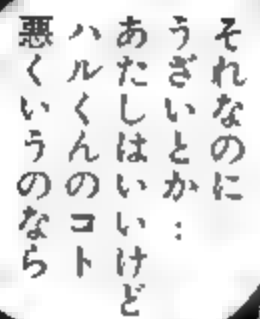 それなのに
うざいとか…
あたしはいいけど
ハルくんのコト
悪くいうのなら